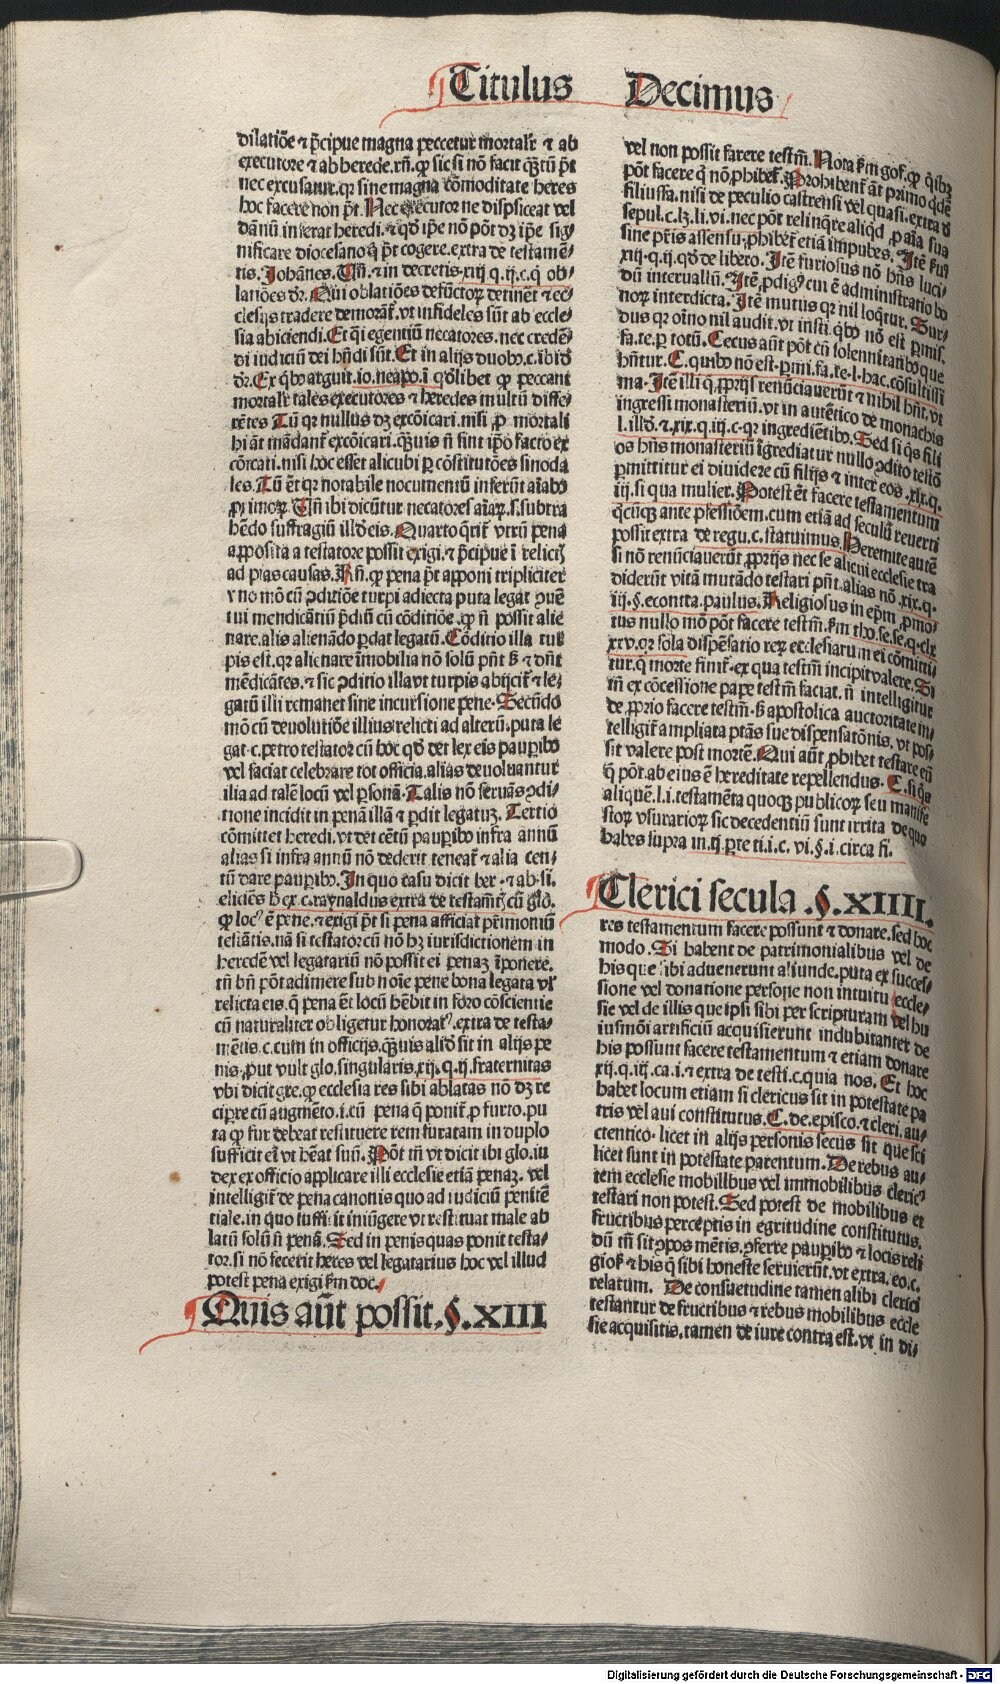 Titulus Decimus
dilatiōe ⁊ p̄cipue magna peccetur mortalr̄ ⁊ ab
executore ⁊ ab herede. rn̄. ꝙ sic si nō facit q̄ꝫtū p̄t
nec excusatur. qꝛ sine magna cōmoditate heres
hoc facere non p̄t. Nec executor ne dispsiceat vel
dānū inferat heredi. ⁊ qd̄ ip̄e nō pōt dꝫ ip̄e sig⸗
nificare diocesano q̄ p̄t cogere. extra de testamē⸗
tis. Johānes. Tn̄. ⁊ in decretis. xiij q. ij. c. q̄ ob⸗
latiōes dr̄. Qui oblatiōes defūctoꝝ detinēt ⁊ ec⸗
clesijs tradere demorāt. vt infideles sūt ab eccle⸗
sia abiciendi. Et q̄i egentiū necatores. nec credē⸗
di iudiciū dei hn̄di sūt. Et in alijs duobꝰ. c. ibidē
dr̄. Ex qͥbꝰ arguit. io. neapo. ī qd̄libet ꝙ peccant
mortalr̄ tales executores ⁊ heredes multū diffe⸗
rētes Tū qꝛ nullus dꝫ excōicari. nisi ꝓ mortali
hi āt mādant̄ excōicari. q̄ꝫuis n̄ sint ip̄o facto ex
cōicati. nisi hoc esset alicubi ꝑ cōstitutōes sinoda
les. Tū ēt qꝛ notabile nocumentū inferūt aīabꝰ
ꝓximoꝝ. Tn̄ ibi dicūtur necatores aīaꝝ. s. subtra
hēdo suffragiū illd̄ eis. Quarto q̄rit̄ vtrū pena
apposita a testatore possit exigi. ⁊ p̄cipue ī relictꝭ
ad pias causas. Rn̄. ꝙ pena p̄t apponi tripliciter
r no mō cū ꝯditiōe turpi adiecta puta legat ꝯuē
tui mendicātiū p̄diū cū cōditiōe. ꝙ n̄ possit alie
nare. alis alienādo ꝑdat legatū. Cōditio illa tur
pis est. qꝛ alienare īmobilia nō solū pn̄t sꝫ ⁊ dn̄t
mēdicātes. ⁊ sic ꝯditio illa vt turpis abijcit̄ ⁊ le⸗
gatū illi remanet sine incursione pene. Secūdo
mō cū deuolutiōe illius relicti ad alterū. puta le
gat. c. petro testator cū hoc qd̄ det lex eis pauꝑibꝰ
vel faciat celebrare tot officia. alias deuoluantur
illa ad talē locū vel ꝑsonā. Talis nō seruās ꝯdi⸗
tione incidit in penā illā ⁊ ꝑdit legatuꝫ. Tertio
cōmittet heredi. vt det cētū pauꝑibꝰ infra annū
alias si infra annū nō dederit teneat̄ ⁊ alia cen⸗
tū dare pauꝑibꝰ. In quo casu dicit her. ⁊ ab. si.
eliciēs h̄ ex. c. raynaldus extra de testam̄tꝭ cū glo.
ꝙ locꝰ ē pene. ⁊ exigi p̄t si pena afficiat pr̄imoniū
testātis. nā si testator cū nō hꝫ iurisdictionem in
heredē vel legatariū nō possit ei penaꝫ īponere.
tn̄ bn̄ pōt adimere sub noīe pene bona legata vl̄
relicta eis. q̄ pena ēt locū hēbit in foro cōscientie
cū naturaliter obligetur honoratꝰ. extra de testa⸗
mētis. c. cum in officijs. q̄ꝫuis aliď sit in alijs pe
nis. ꝓut vult glo. singularis. xij. q. ij. fraternitas
vbi dicit gre. ꝙ ecclesia res sibi ablatas nō dꝫ re
cipre cū augmēto. i. cū pena q̄ ponit̄. ꝓ furto. pu
ta ꝙ fur debeat restituere rem furatam in duplo
sufficit ei vt hēat suū. Pōt tn̄ vt dicit ibi glo. iu
dex ex officio applicare illi ecclesie etiā penaꝫ. vel
intelligit̄ de pena canonis quo ad iudiciū penitē
tiale. in quo sufficit iniūgere vt restituat male ab
latū solū n̄ penā. Sed in penis quas ponit testa⸗
tor. si nō fecerit heres vel legatarius hoc vel illud
potest pena exigi ẜm doc.
Quis aūt possit. §. XIII
vel non possit facere testm̄. Nota ẜm gof. ꝙ qͥbꝫ
pōt facere q̄ nō ꝓhibet̄. Prohibent̄ āt primo qdē
filiusfa. nisi de peculio castrensi vel quasi. extra d̄
sepul. c. lꝫ. li. vi. nec pōt relinq̄re aliqd̄. ꝓ aīa sua
sine pr̄is assensu. ꝓhibet̄ etiā impubes. Itē ẜuꝰ
xiij. q. ij. qd̄ de libero. Itē furiosus nō hn̄s luci⸗
dū interuallū. Itē ꝓdigꝰ cui ē administratio bo
noꝝ interdicta. Itē mutus qꝛ nil loqͥtur. Sur⸗
dus qꝛ oīno nil audit. vt insti. qͥbꝰ nō est ꝑmis.
fa. te. ꝑ totū. Cecus aūt pōt cū solennitatibꝰ que
hn̄tur. C. quibꝰ nō est. ꝑmi. fa. te. l. hac. cōsultissi
ma. Itē illi q̄ ꝓprijs renūciauerūt ⁊ nihil hn̄t. vt
ingressi monasteriū. vt in autētico de monachis
l. illd̄. ⁊. xix. q. iij. c. qꝛ ingrediētibꝰ. Sed si q̄s fili
os hn̄s monasteriū īgrediatur nullo ꝯdito testō
ꝑmittitur ei diuidere cū filijs ⁊ inter eos. xix. q.
iij. si qua mulier. Potest ēt facere testamentum
q̄cūqꝫ ante ꝓfessiōem. cum etiā ad seculū reuerti
possit extra de regu. c. statuimus. Heremite autē
si nō renūciauerūt ꝓprijs nec se alicui ecclesie tra
diderūt vitā mutādo testari pn̄t. alias nō. xix. q.
iij. §. econtra. paulus. Religiosus in epm̄ ꝓmo⸗
tus nullo mō pōt facere testm̄. ẜm tho. se. se. q. clx
xxv. qꝛ sola dispēsatio reꝝ ecclesiarum ei cōmitti⸗
tur. q̄ morte finit̄. ex qua testm̄ incipit valere. Si
tn̄ ex cōcessione pape testm̄ faciat. n̄ intelligitur
de. ꝓprio facere testm̄. sꝫ apostolica auctoritate in⸗
telligit̄ ampliata ptās sue dispensatōnis. vt pos⸗
sit valere post mortē. Qui aūt ꝓhibet testare eū
q̄ pōt. ab eius ē hereditate repellendus. C. si q̄s
aliquē. l. i. testamēta quoqꝫ publicoꝝ seu manife
stoꝝ vsurarioꝝ sic decedentiū sunt irrita de quo
habes supra in. ij. ꝑte ti. i. c. vi. §. i. circa fi.
Clerici secula. §. XIIII.
res testamentum facere possunt ⁊ donare. sed hoc
modo. Si habent de patrimonialibus vel de
his que sibi aduenerunt aliunde. puta ex succes⸗
sione vel donatione persone non intuitu eccle⸗
sie vel de illis que ipsi sibi per scripturam vel hu
iusmōi artificiū acquisierunt indubitanter de
his possunt facere testamentum ⁊ etiam donare
xij. q. iij. ca. i. ⁊ extra de testi. c. quia nos. Et hoc
habet locum etiam si clericus sit in potestate pa
tris vel aui constitutus. C. de. episco. ⁊ cleri. au⸗
ctentico. licet in alijs personis secus sit que sci
licet sunt in potestate parentum. De rebus au⸗
tem ecclesie mobillbus vel immobilibus clericꝰ
testari non potest. Sed potest de mobilibus et
fructibus perceptis in egritudine constitutus.
dū tn̄ sit ꝯpos mētis. ꝯferre pauꝑibꝰ ⁊ locis reli
gioẜ ⁊ his q̄ sibi honeste seruierūt. vt extra. eo. c.
relatum. De consuetudine tamen alibi clerici
testantur de fructibus ⁊ rebus mobilibus eccle
sie acquisitis. tamen de iure contra est. vt in di⸗
Digitalisierung gefördert durch die Deutsche Forschungsgemeinschaft - DFG